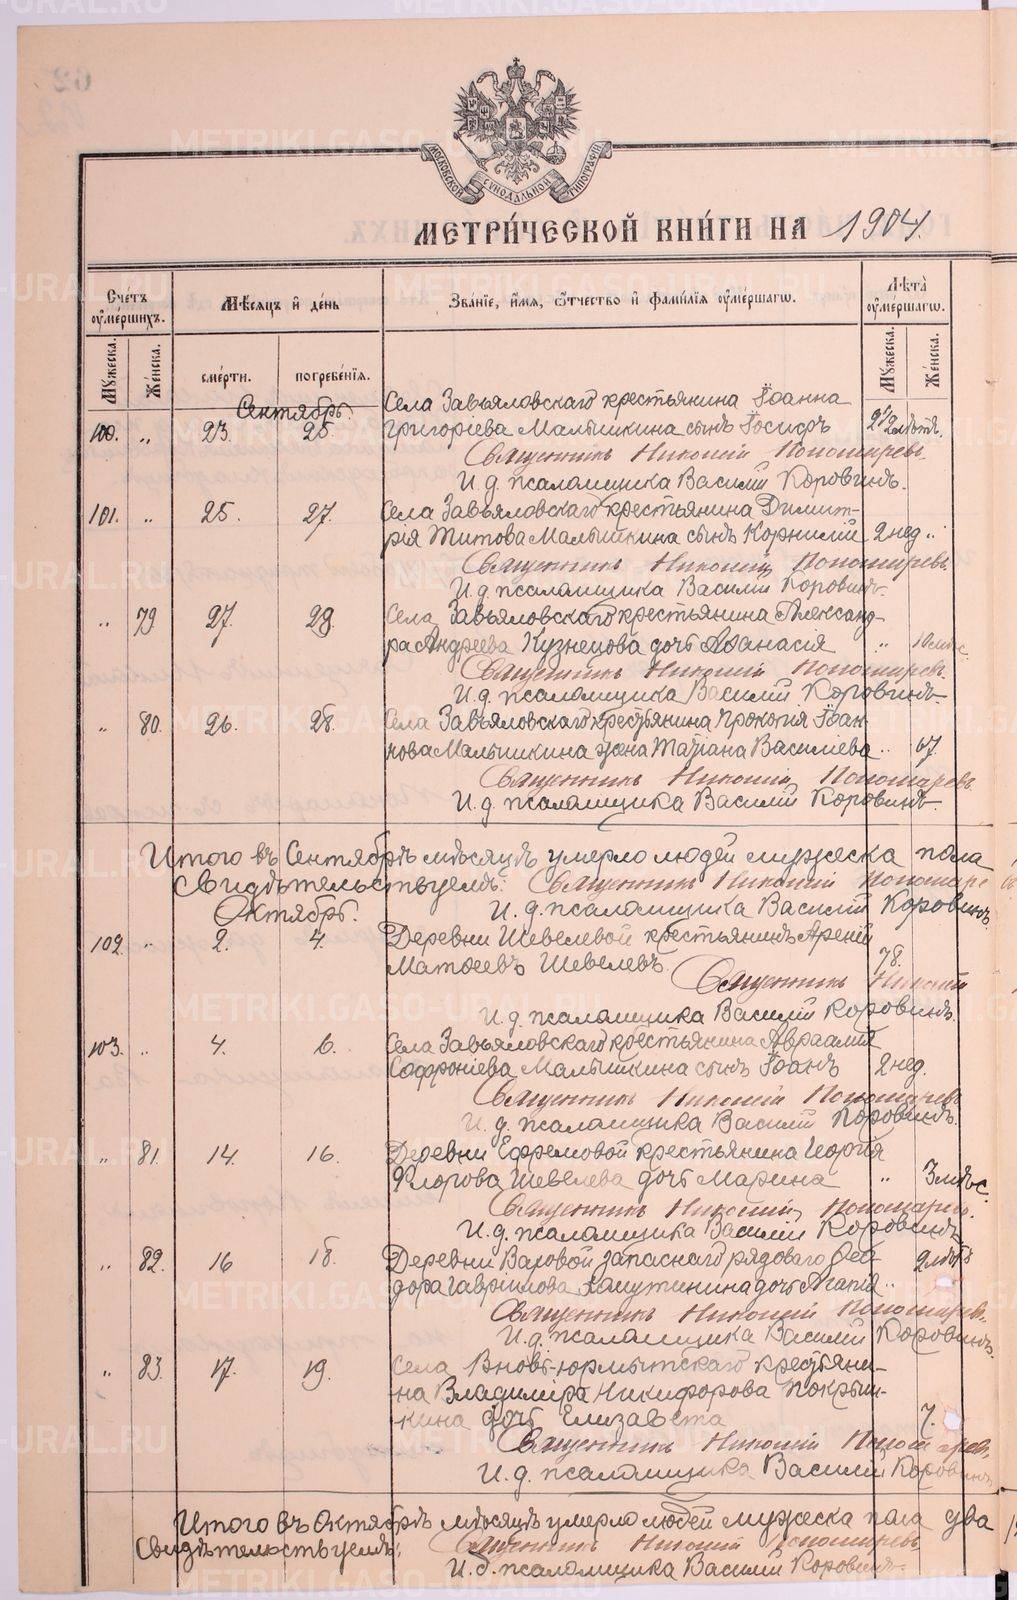 МОСКОВСКОЙ СѴНОДАЛЬНОЙ ТИПОГРАФІИ
МЕТРИ́ЧЕСКОЙ КНИ́ГИ НА 1904.
Сче́тъ оу҆ме́ршихъ.
Мѣ́сяцъ и҆ де́нь
Зва́нїе, и҆́мя, ѻ҆́тчество и҆ фами́лїя оу҆ме́ршагѡ.
Лѣ́та оу҆ме́ршагѡ.
Му́жеска.
Же́нска.
сме́рти.
погребе́нїя.
Му́жеска.
Же́нска.
Сентябрь.
Села Завьяловскаго крестьянина Іоанна
100. „ 23. 25. Григоріева Малышкина сынъ Іосифъ 2½ лѣтъ.
Священникъ Николай Пономаревъ.
И. д. псаломщика Василій Коровинъ.
101. „ 25. 27. Села Завьяловскаго крестьянина Димит-
рія Титова Малышкина сынъ Корнилій 2 нед „
Священникъ Николай Пономаревъ
И. д. псаломщика Василій Коровинъ.
„ 79 27. 29. Села Завьяловскаго крестьянина Александ-
ра Андреева Кузнецова дочь Аѳанасія „ 10 мѣс.
Священникъ Николай Пономаревъ.
И. д. псаломщика Василій Коровинъ.
„ 80. 26. 28. Села Завьяловскаго крестьянина Прокопія Іоан-
нова Малышкина жена Татіана Василіева „ 67.
Священникъ Николай Пономаревъ.
И. д. псаломщика Василій Коровинъ.
Итого въ Сентябрѣ мѣсяцѣ умерло людей мужеска пола
Свидѣтельствуемъ: Священникъ Николай Пономаре
Октябрь. И. д. псаломщика Василій Коровинъ.
102. „ 2. 4. Деревни Шевелевой крестьянинъ Арсеній
Матѳеевъ Шевелевъ. 78.
Священникъ Николай
И. д. псаломщика Василій Коровинъ.
103. „ 4. 6. Села Завьяловскаго крестьянина Авраамія
Софроніева Малышкина сынъ Іоаннъ 2 нед.
Священникъ Николай Пономаревъ
И. д. псаломщика Василій Коровинъ.
„ 81. 14. 16. Деревни Ефремовой крестьянина Георгія
Флорова Шевелева дочь Марина „ 3 мѣс.
Священникъ Николай Пономаревъ.
И. д. псаломщика Василій Коровинъ.
„ 82. 16 18. Деревни Ваховой запаснаго рядоваго Ѳео- 2 лѣтъ
дора Гаврилова Хомутинина дочь Агапія „
Священникъ Николай Пономаревъ.
И. д. псаломщика Василій Коровинъ.
„ 83. 17. 19. Села Вновь-юрмытскаго крестьяни-
на Владиміра Никифорова Покрыш-
кина дочь Елизавета 7.
Священникъ Николай Пономаревъ.
И. д. псаломщика Василій Коровинъ
Итого въ Октябрѣ мѣсяцѣ умерло людей мужеска пола два
Свидѣтельствуемъ: Священникъ Николай Пономаревъ
И. д. псаломщика Василій Коровинъ.
METRIKI.GASO-URAL.RU